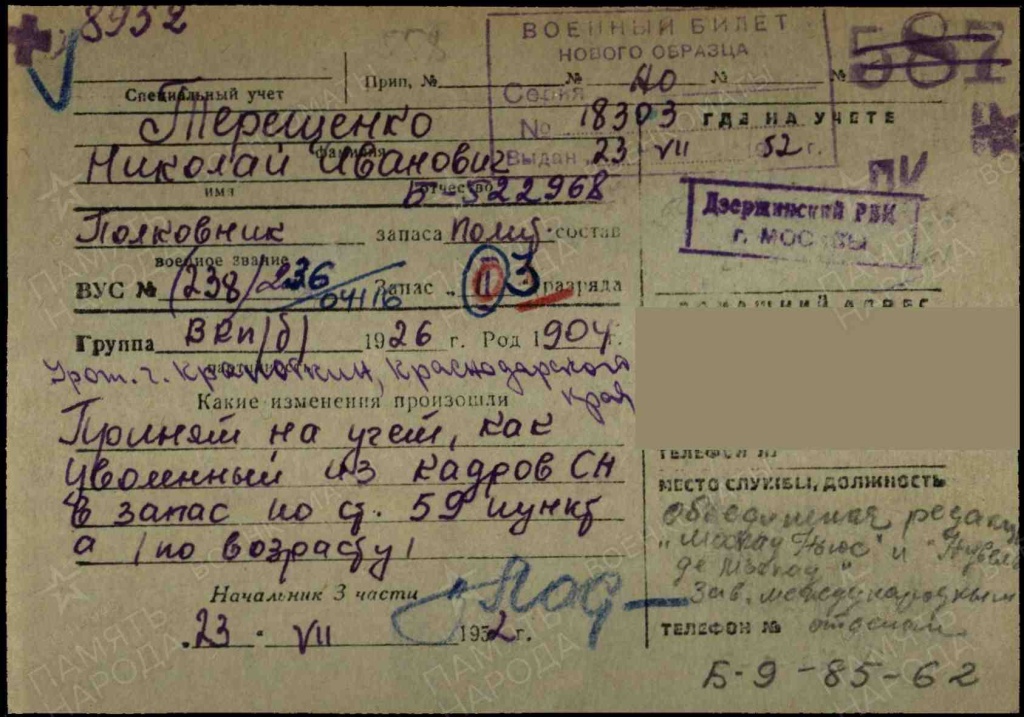 8952
ВОЕННЫЙ БИЛЕТ
НОВОГО ОБРАЗЦА
587
Специальный учет
Прип. №
№ №
№
Серия АО
№ 18303
Выдан 23 - VII 1952 г.
Терещенко
фамилия
Николай Иванович
имя отчество
Б-522968
Полковник запаса Полит. состав
военное звание
ВУС № (238) 236
04116
Запас I 3 разряда
Группа ВКП(б) 1926 г. Род 1904 г.
партийность
Урож. г. Кропоткин, Краснодарского
края
Какие изменения произошли
Принят на учет, как
уволенный из кадров СН
в запас по ст. 59 пункт
а (по возрасту)
Начальник 3 части
23 - VII 1952 г.
ГДЕ НА УЧЕТЕ
ПУ
Дзержинский РВК
г. МОСКВЫ
ДОМАШНИЙ АДРЕС
ТЕЛЕФОН №
МЕСТО СЛУЖБЫ, ДОЛЖНОСТЬ
Объединенная редакц
"Москау Ньюс" и "Нувель
де Москау"
Зав. международным
отделом
ТЕЛЕФОН №
Б-9-85-62
ПАМЯТЬ
НАРОДА